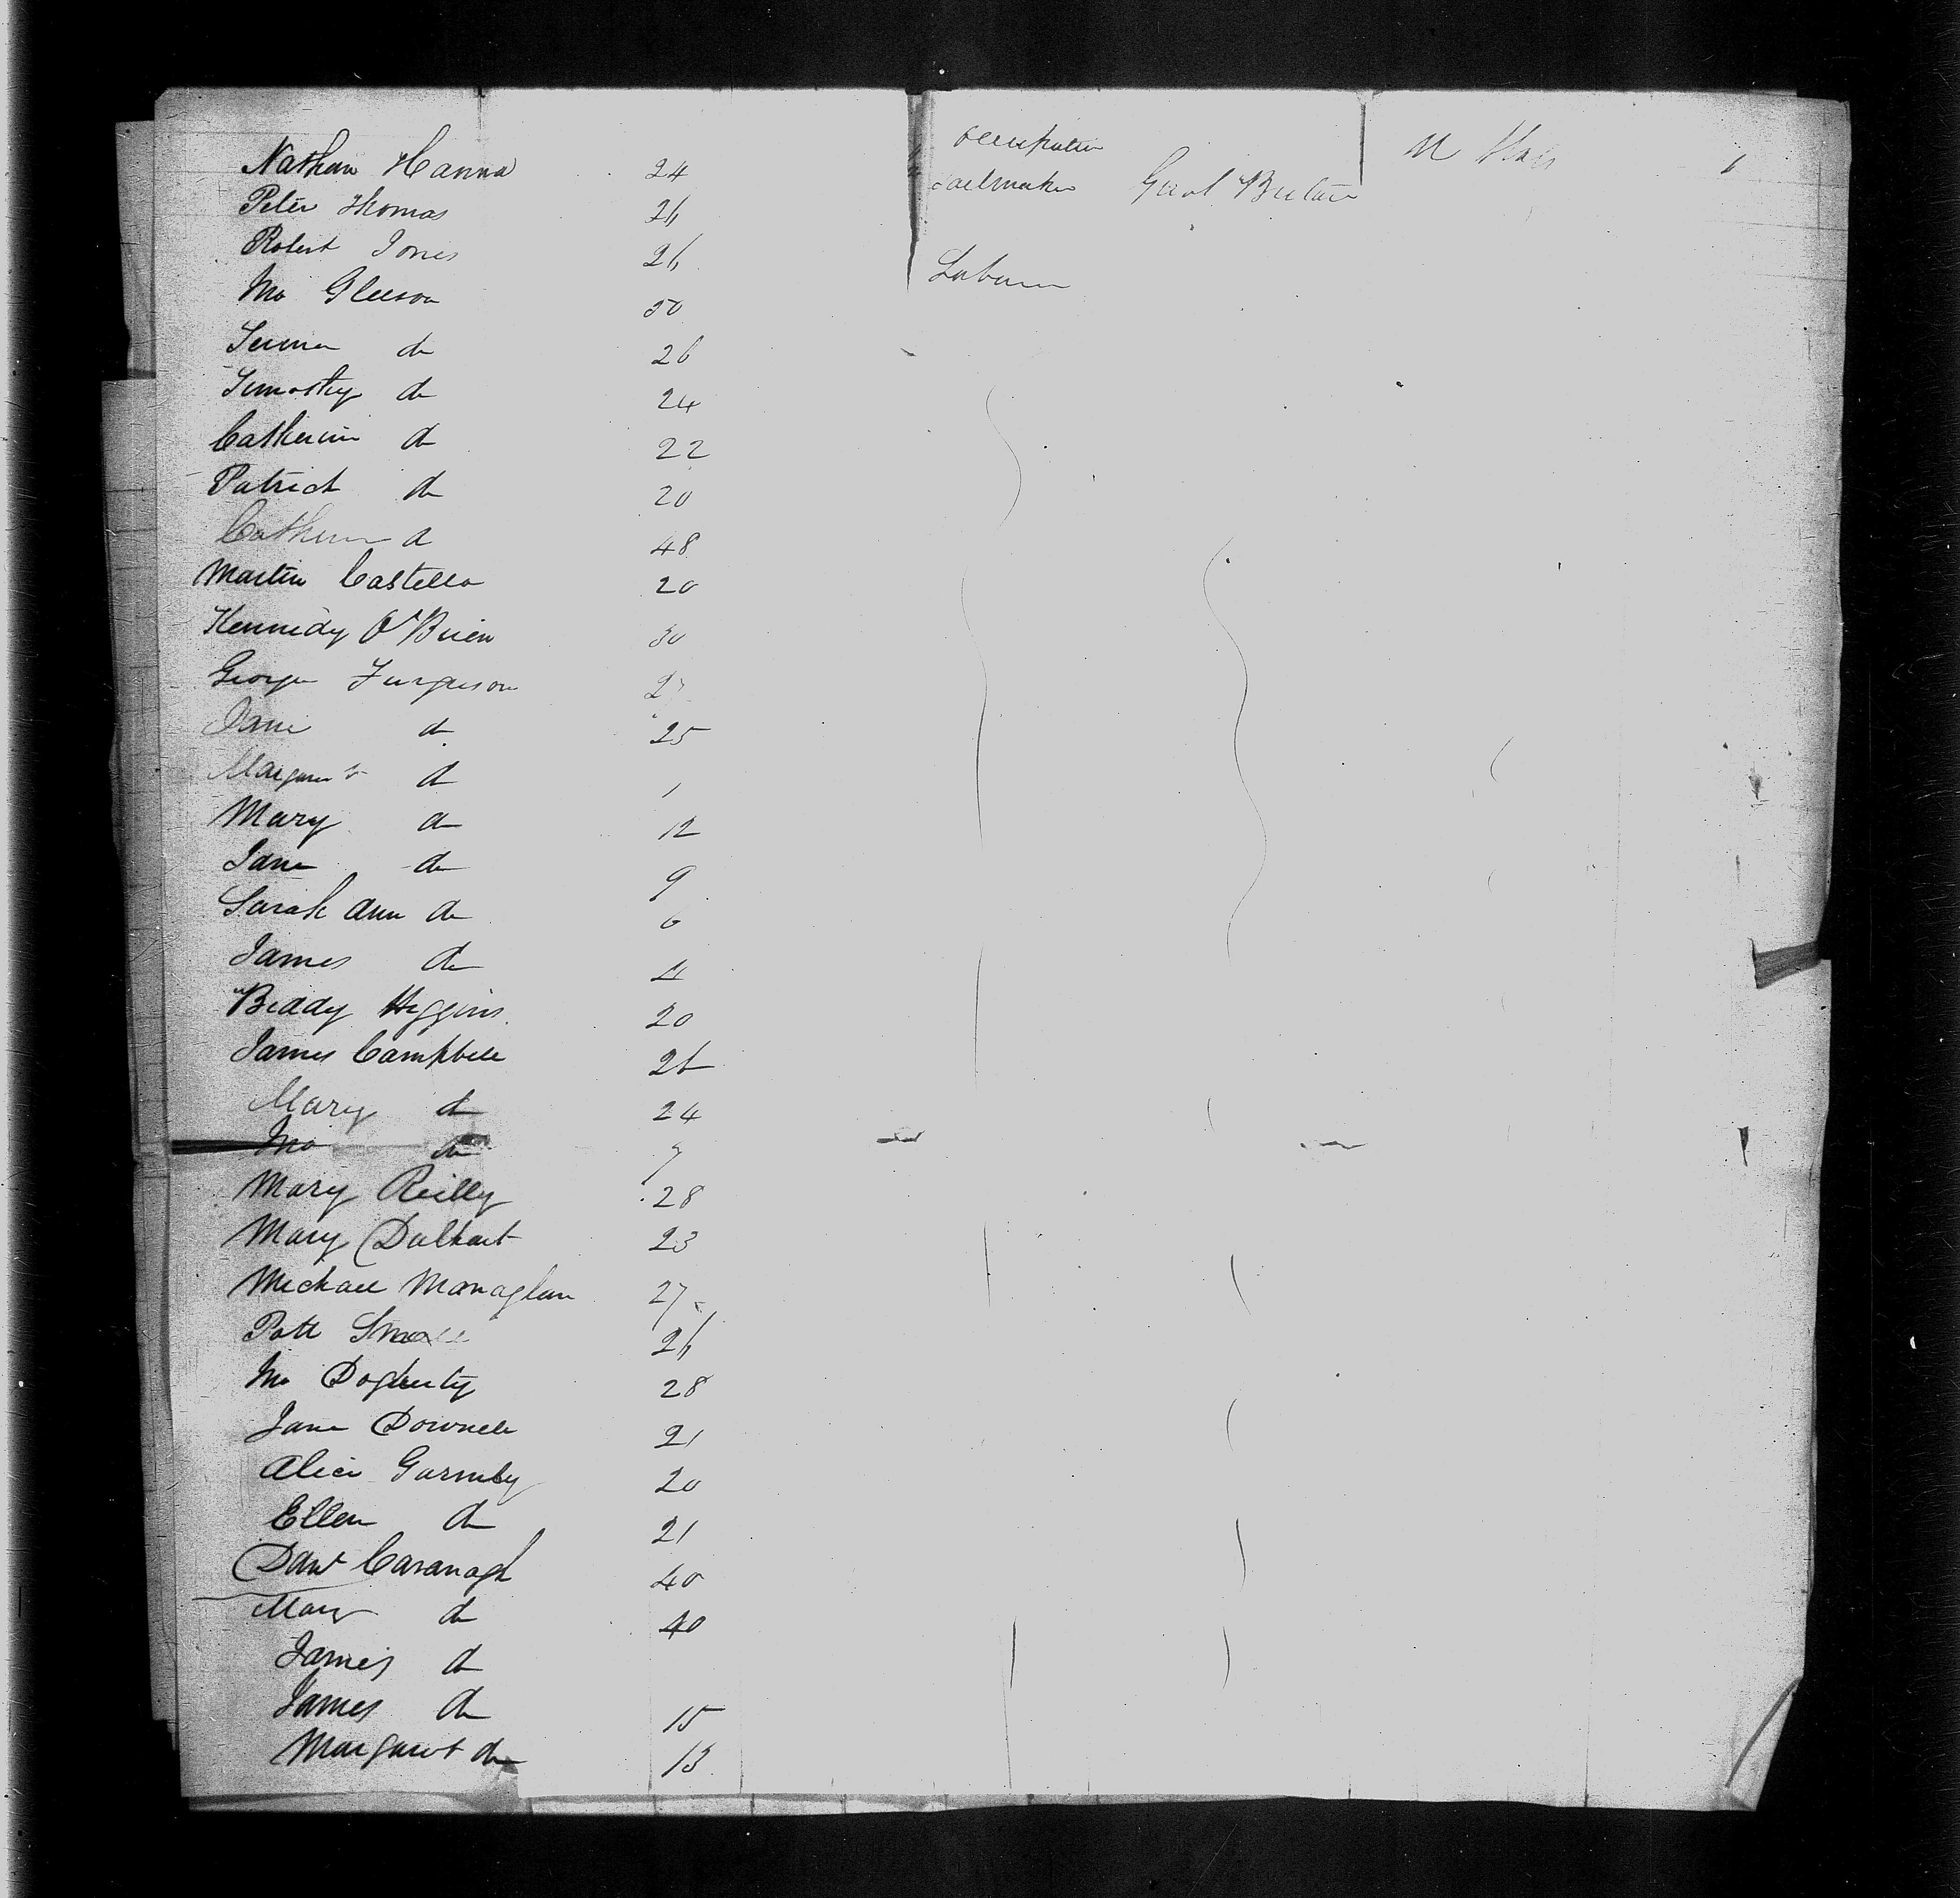 Occupation
Nathan Hanna 24 Sailmaker Great Britain U States
Peter Thomas 26
Robert Jones 26 Laburer
Jno Gleeson 50
do 26
Timothy do 24
Catherine do 22
Patrick do 20
Catherine do 48
Martin Castello 20
Kennedy O'Brien 30
George Furguson
Jane do 25
Margaret do 1
Mary do 12
Jane do 9
Sarah Ann do 6
James do 4
Biddy Higgins 20
James Campbell 26
Mary do 24
Jno do 7
Mary Reilly 28
Mary 23
Michael Monaghan 27
Patt Small 26
Jno Dogherty 28
Jane 21
Alice Gormley 20
Ellen do 21
Cavanagh 40
Mary do 40
James do
James do 15
Margaret do 13